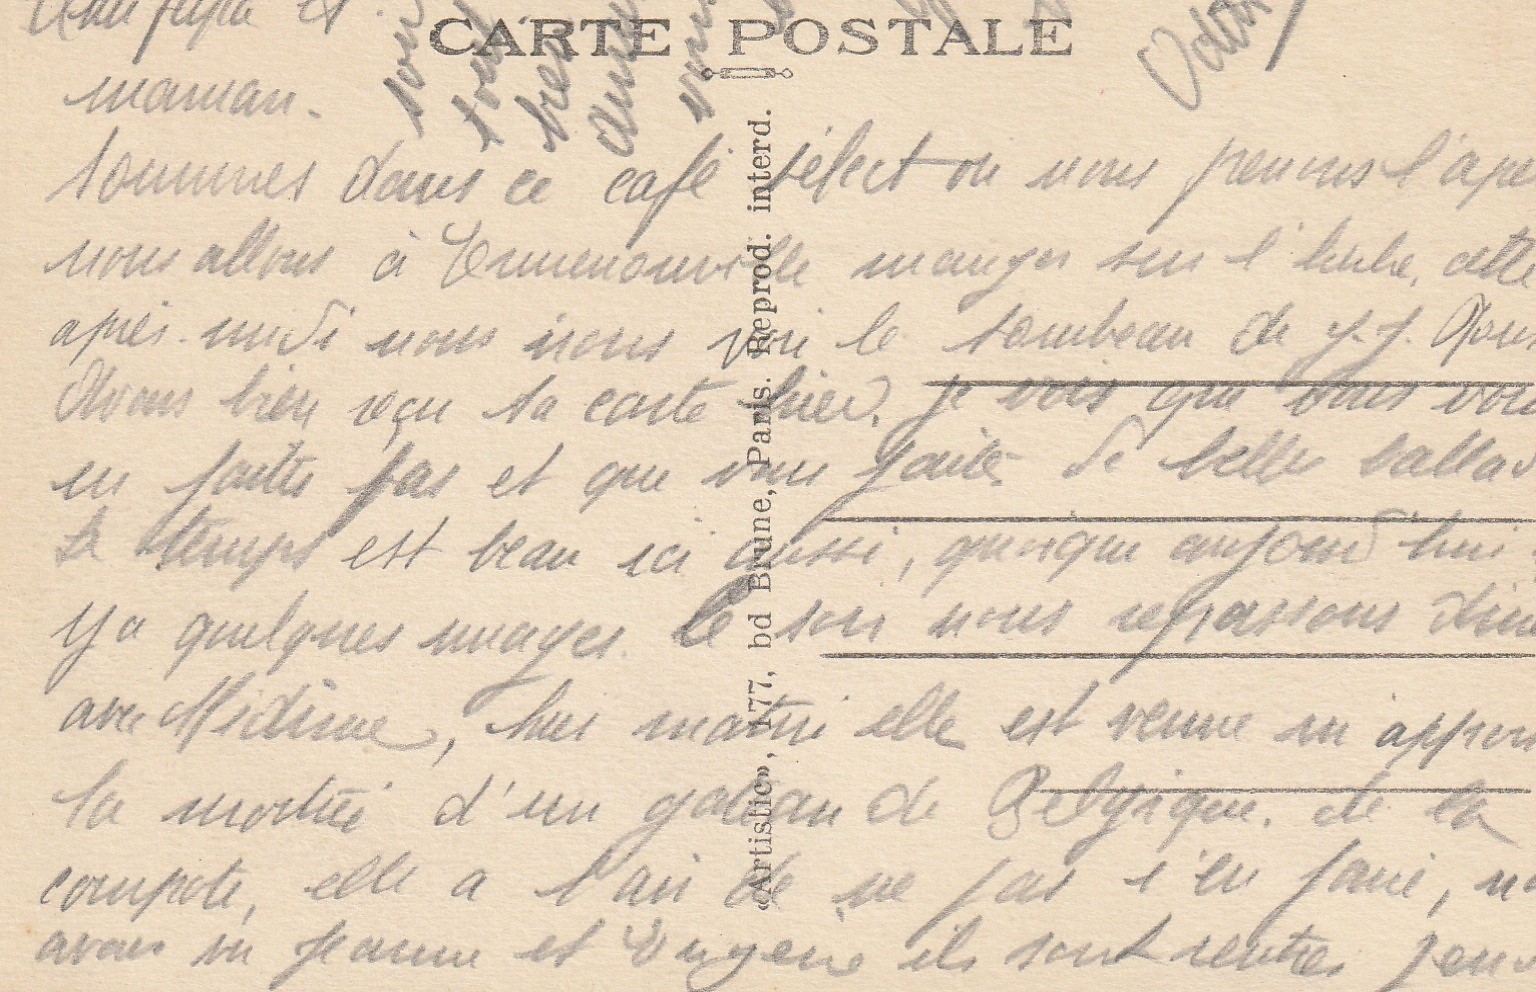 CARTE POSTALE
papa et
maman.
sommes dans ce café sélect ou nous prenons l'apé
nous allons à Ermenonville manger sur l'herbe, cette
après-midi nous irons voir le tombeau de J.J. Rous
Avons bien reçu ta carte hier, je vois que vous vous
en faites pas et que vous faites de belles ballad
Le temps est beau ici aussi, quoique aujourd'hui
y a quelques nuages. Le soir nous repassons
avec, hier matin elle est venue en apport
la moitié d'un gateau de Belgique. de la
compote, elle a l'air de ne pas s'en faire, no
avons vu Jeanne et Eugène ils sont rentrés
«Artistic», 177, bd Brune, Paris. Reprod. interd.
tous
bien
vous